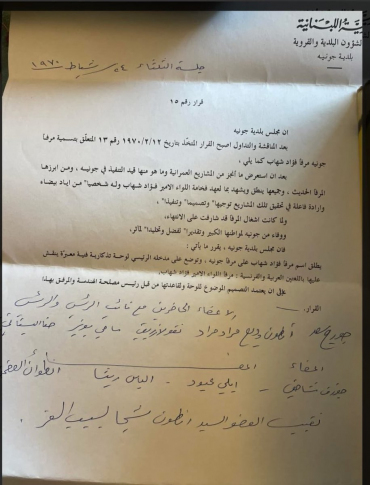 الجمهورية اللبنانية
الشؤون البلدية والقروية
بلدية جونيه
جلسة الثلثاء ٢٤ شباط ١٩٧٠
قرار رقم ١٥
ان مجلس بلدية جونيه
بعد المناقشة والتداول اصبح القرار المتخذ بتاريخ ١٩٧٠/٢/١٢ رقم ١٣ المتعلق بتسمية مرفأ
جونيه مرفأ فؤاد شهاب كما يلي .
بعد ان استعرض ما أنجز من المشاريع العمرانية وما هو منها قيد التنفيذ في جونيه ، ومن ابرزها
المرفأ الحديث ، وجميعها ينطق ويشهد بما لعهد فخامة اللواء الامير فؤاد شهاب وله شخصيا" من اياد بيضاء
وارادة فاعلة في تحقيق تلك المشاريع توجيها" وتصميما" وتنفيذا" ،
ولما كانت اشغال المرفأ قد شارفت على الانتهاء،
ووفاء من جونيه لمواطنها الكبير وتقديرا" لفضل وتخليدا" لمآثر.
فان مجلس بلدية جونيه ، يقرر ما يأتي :
يطلق اسم مرفأ فؤاد شهاب على مرفأ جونيه ، وتوضع على مدخله الرئيسي لوحة تذكارية فنية معبرة ينقش
عليها باللغتين العربية والفرنسية : مرفأ اللواء الامير فؤاد شهاب.
على ان يعتمد التصميم الموضوع للوحة ولقاعدتها من قبل رئيس مصلحة الهندسة والمرفق بهذا
القرار.
الاعضاء الحاضرين مع نائب الرئيس والرئيس
انطون وديع مراد مراد
امضاء
ايلي عبود - الياس
تغيب العضو السيد انطون بسبب السفر .